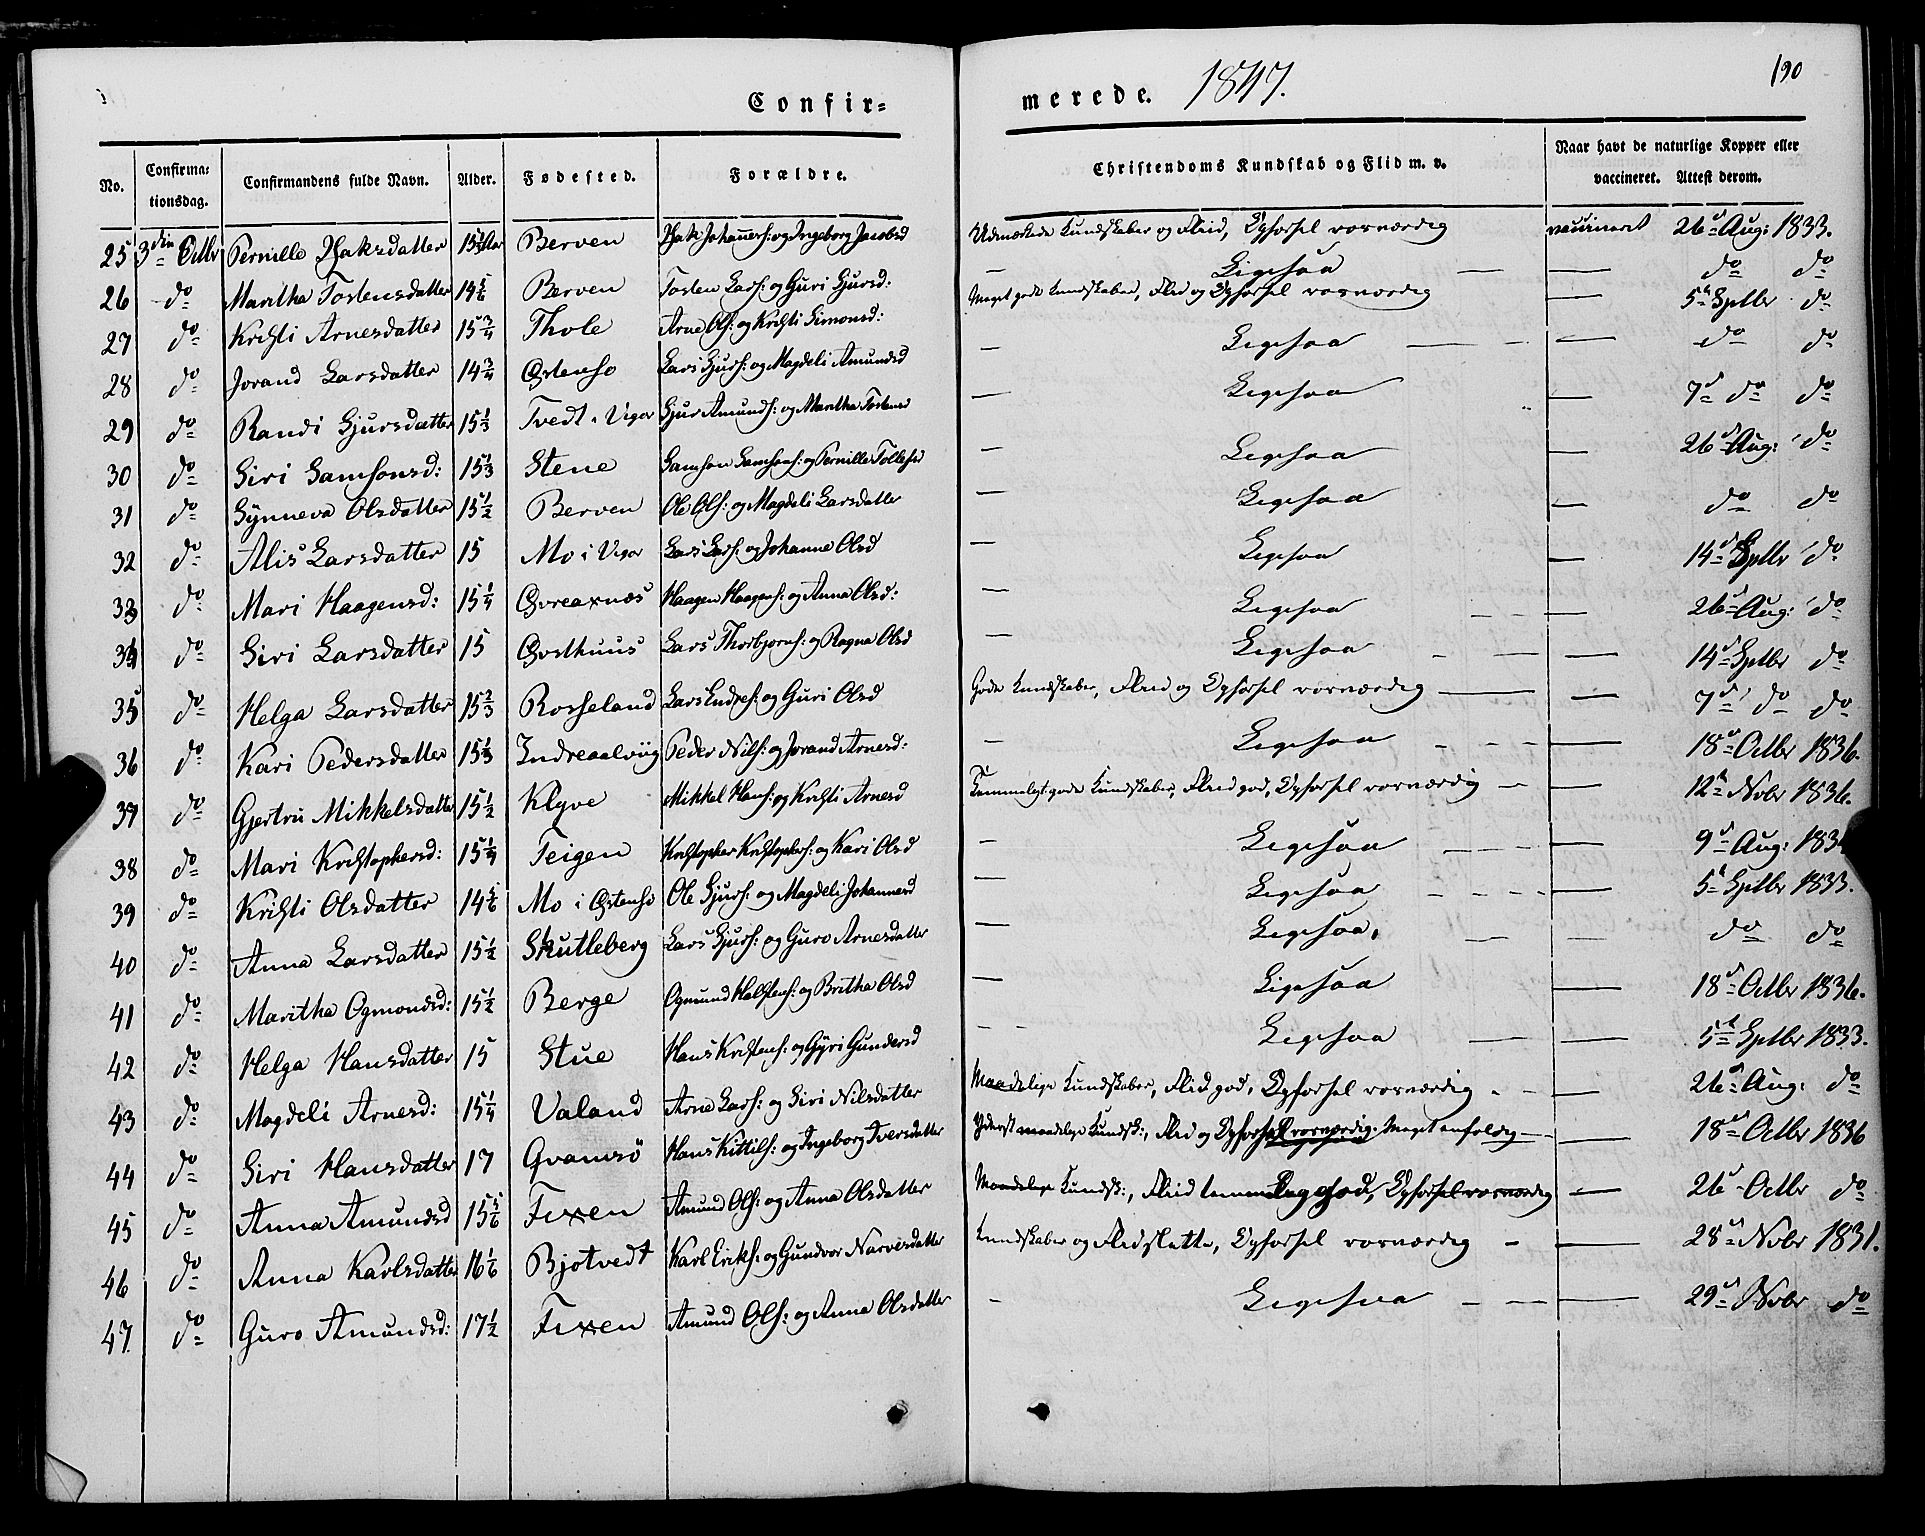 Confir=
merede. 1847.
190
No. | Confirma=tionsdag. | Confirmandens fulde Navn. | Alder. | Fødested. | Forældre. | Christendoms Kundskab og Flid m. v. | Naar havt de naturlige Kopper eller vaccineret. Attest derom.
25 | 3die Octbr | Pernille Isaksdatter | 15 Aar | Berven | Isak Johannes: og Ingeborg Jacobsd | Udmærkede Kundskaber og Fliid, Opførsel rosværdig | vaccineret 26d Aug: 1833.
26 | do | Maritha Tostensdatter | 14 5/6 | Berven | Tosten Lars: og Guri Sjursd: | — Ligesaa — | — do do
27 | do | Kristi Arnesdatter | 15 3/4 | Thole | Arne Ols: og Kristi Simonsd: | Meget gode Kundskaber, Flid og Opførsel rosværdig | — 5te Sptbr do
28 | do | Jorand Larsdatter | 14 3/4 | Østensø | Lars Sjurs: og Magdeli Amundsd | — Ligesaa — | — do do
29 | do | Randi Sjursdatter | 15 1/3 | Tvedt i Vigør | Sjur Amunds: og Maritha Tostensd | — Ligesaa | — 7d do do
30 | do | Siri Samsonsd: | 15 1/3 | Stene | Samson Samsons: og Pernille Tollefsd | — Ligesaa | — 26d Aug: do
31 | do | Synneva Olsdatter | 15 1/2 | Berven | Ole Ols: og Magdeli Larsdatter | — Ligesaa | — do do
32 | do | Alis Larsdatter | 15 | Mo i Vigør | Lars Lars: og Johanna Olsd | — Ligesaa | — 14d Sptbr do
33 | do | Mari Haagensd: | 15 1/4 | Øvreaxnæs | Haagen Haagens: og Anna Olsd: | — Ligesaa — | — 26d Aug: do
34 | do | Siri Larsdatter | 15 | Østhuus | Lars Thorbjørns: og Ragna Olsd | — Ligesaa — | — 14d Sptbr do
35 | do | Helga Larsdatter | 15 2/3 | Rosseland | Lars Endres: og Guri Olsd | Gode Kundskaber, Fliid og Opførsel rosværdig — | — 7d do do
36 | do | Kari Pedersdatter | 15 1/3 | Indreaalviig | Peder Nils: og Jorand Arnesd: | — Ligesaa — | — 18d Octbr 1836.
37 | do | Gjertru Mikkelsdatter | 15 1/2 | Klyve | Mikkel Hans: og Kristi Arnesd | Temmeligt gode Kundskaber, Fliid god, Opførsel rosværdig — | — 12te Nvbr 1836.
38 | do | Mari Kristophersd: | 15 1/4 | Teigen | Kristopher Kristophers: og Kari Olsd | — Ligesaa — | — 9d Aug:
39 | do | Kristi Olsdatter | 14 5/6 | Mo i Østensø | Ole Sjurs: og Magdeli Johannesd | — Ligesaa — | — 5te Sptbr 1833.
40 | do | Anna Larsdatter | 15 1/2 | Skutleberg | Lars Sjurs: og Guro Arnesdatter | — Ligesaa, — | — do do
41 | do | Maritha Ogmondsd: | 15 1/2 | Berge | Ogmund Halstens: og Britha Olsd | — Ligesaa | — 18d Octbr 1836.
42 | do | Helga Hansdatter | 15 | Stue | Hans Kristens: og Gyri Gundersd | — Ligesaa — | — 5te Sptbr 1833.
43 | do | Magdeli Arnesd: | 15 1/4 | Valand | Arne Lars: og Siri Nilsdatter | Maadelige Kundskaber, Fliid god, Opførsel rosværdig - - | — 26d Aug: do
44 | do | Siri Hansdatter | 17 | Qvamsø | Hans Kittils: og Ingeborg Iversdatter | Yderst maadelige Kundsk:, Flid og Opførsel rosværdig. Meget enfoldig — | — 18d Octbr 1836
45 | do | Anna Amundsd | 15 5/6 | Fixen | Amund Ols: og Anna Olsdatter | Maadelige Kundsk:, Fliid temmelig god, Opførsel rosværdig | — 26d Octbr do
46 | do | Anna Karlsdatter | 16 1/6 | Bjotvedt | Karl Eriks: og Gundvor Narvesdatter | Kundskaber og Flid slette, Opførsel rosværdig — | — 28d Nvbr 1831.
47 | do | Guro Amundsd: | 17 1/2 | Fixen | Amund Ols: og Anna Olsdatter | — Ligesaa — | — 29d Nvbr do